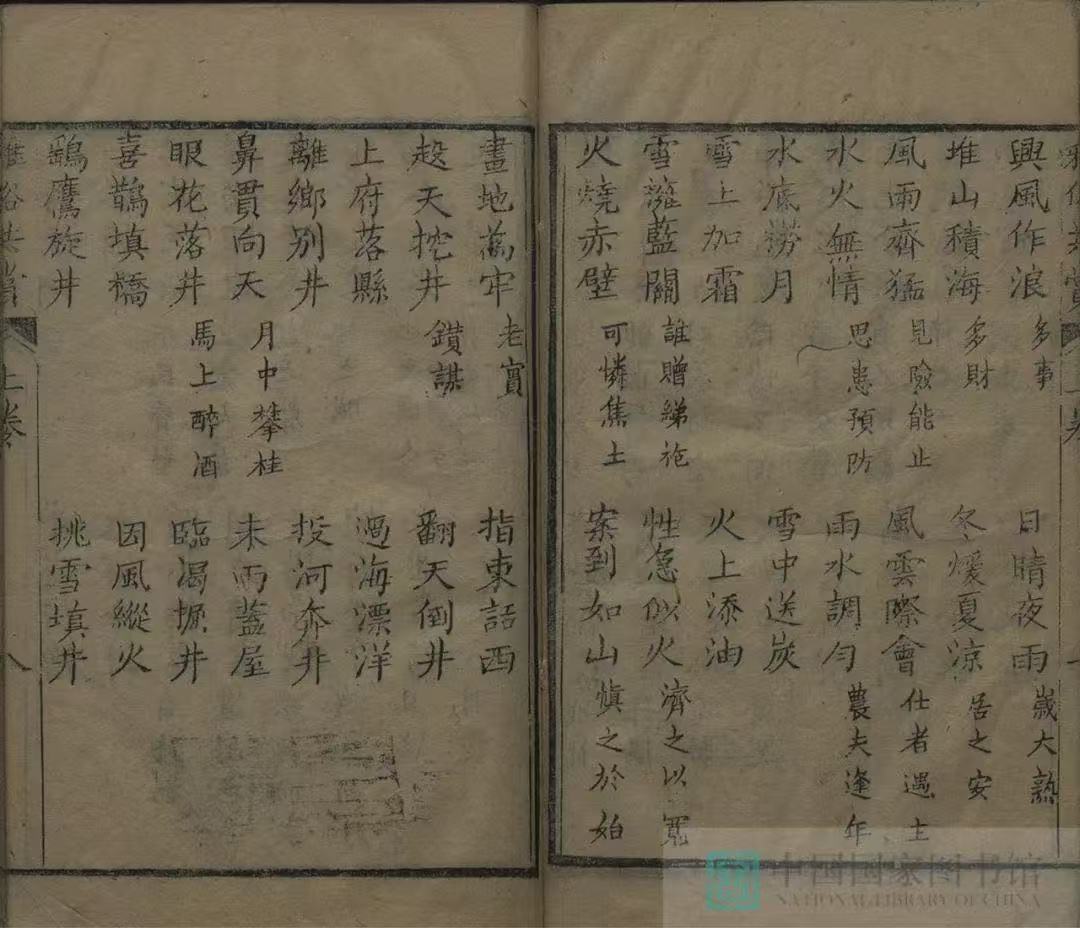 雅俗共賞 上卷
興風作浪 多事 日晴夜雨 歲大熟
堆山積海 多財 冬煖夏涼 居之安
風雨齊猛 見險能止 風雲際會 仕者遇主
水火無情 思患預防 雨水調勻 農夫逢年
水底撈月 雪中送炭
雪上加霜 火上添油
雪擁藍關 誰贈綈袍 性急似火 濟之以寬
火燒赤壁 可憐焦土 案到如山 慎之於始
畫地為牢 老實 指東話西
天挖井 鑽謀 翻天倒井
上府落縣 過海漂洋
離鄉別井 投河奔井
鼻貫向天 月中攀桂 未雨蓋屋
眼花落井 馬上醉酒 臨渴掘井
喜鵲填橋 因風縱火
鷹旋井 挑雪填井
雅俗共賞 上卷 八
中国国家图书馆
NATIONAL LIBRARY OF CHINA